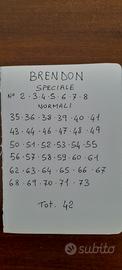 BRENDON
SPECIALE
N° 2·3·4·5·6·7·8
NORMALI
35·36·38·39·40·41
43·44·46·47·48·49
50·51·52·53·54·55
56·57·58·59·60·61
62·63·64·65·66·67
68·69·70·71·73
Tot. 42
subito